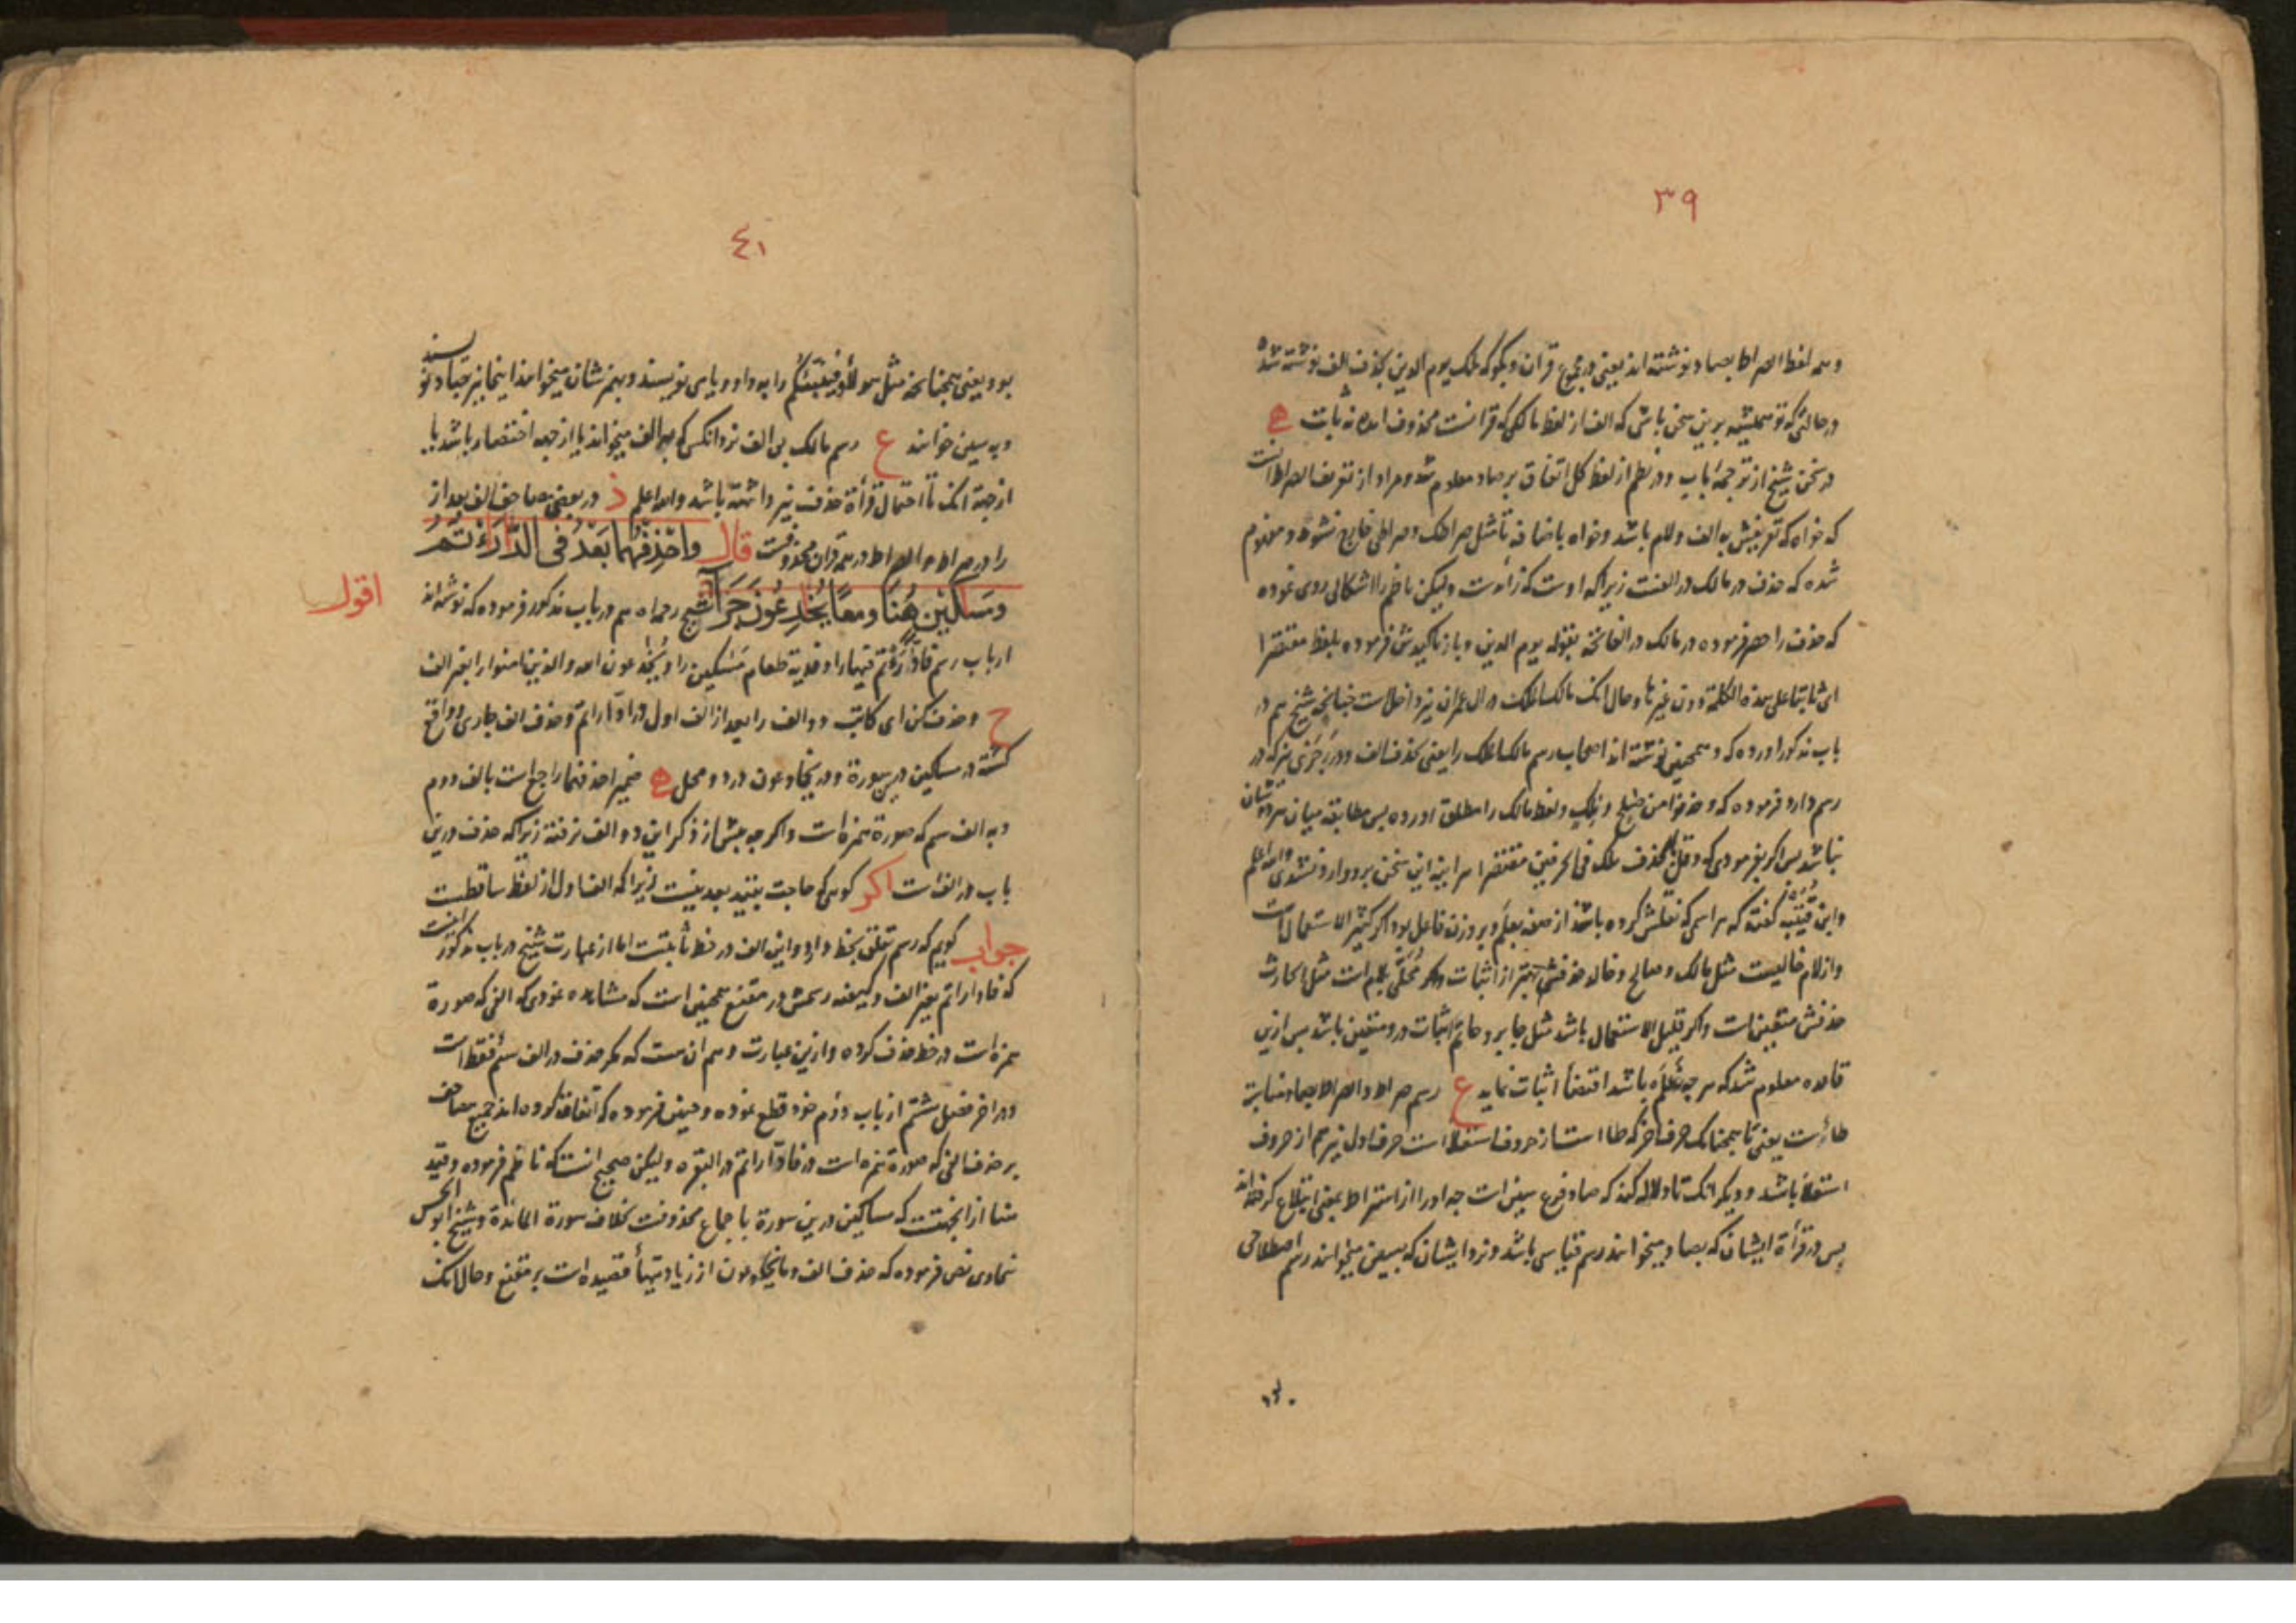 ۳۹
و همه لفظ الصراط بصاد نوشته‌اند یعنی در مجموع قرآن و بگو که ملک یوم الدین بحذف الف نوشته شده
در حالتی که تو همیشه برین سخن باشی که الف از لفظ مالکی که قرانست محذوف است نه ثابت ه
در سخن شیخ از ترجمه باب و در نظم از لفظ کل اتفاق بر صاد معلوم شد و مراد از تعریف الصراط آنست
که خواه که تعریفش به الف و لام باشد و خواه باضافه تا مثل صراطک و صراطی خارج نشود و معلوم
شده که حذف در مالک در الفست زیرا که اوست که زائدست ولیکن ناظم را اشکالی روی نموده
که حذف را حصر فرموده در مالک در الفاتحة بقوله یوم الدین و باز تاکیدش فرموده بلفظ مقتصرا
ای ثابتا علی هذه الکلمة دون غیرها و حال آنک مالک الملک در آل عمران نیز داخلست چنانچه شیخ هم در
باب مذکور آورده که و همچنین نوشته‌اند اصحاب رسم مالک الملک را یعنی بحذف الف و در نیز که در
رسم دارد فرموده که و لفظ مالک را مطلق آورده پس مطابقه میان هر دوشان
نباشد پس اگر بفرمودی که و قل بحذف ملک فی الحرفین مقتصرا هر آینه این سخن برو وارد نشدی والله اعلم
و ابن قتیبه گفته که هر اسمی که نقلش کرده باشند از صفه بعلم و بر وزن فاعل بود اگر کثیر الاستعمالست
و از لام خالیست مثل مالک و صالح و خالد حذفش بهتر از اثبات و اگر محلی بلام است مثل الحارث
حذفش متعین است و اگر قلیل الاستعمال باشد مثل جابر و حاتم اثبات درو متعین باشد پس ازین
قاعده معلوم شد که هر چه علم باشد اقتضا اثبات نماید ع رسم صراط و الصراط بصاد
طاءست یعنی تا همچنانک حرف آخر که طا است از حروف استعلا است حرف اول نیز هم از حروف
استعلا باشد و دیگر آنک تا دلاله کند که صاد فرع سین است چه او را از استراط بمعنی ابتلاع گرفته‌اند
پس در قرأة ایشان که بصاد میخوانند رسم قیاسی باشد و نزد ایشان که بسین میخوانند رسم اصطلاحی
٤١
بود یعنی همچنانکه مثل هؤلاء و را به واو و یا می نویسند و بهمزه‌شان میخوانند اینجا نیز بصاد نویسند
و به سین خوانند ع رسم مالک بی الف نزد آنکس که به الف میخواند یا از جهه اختصار باشد یا
از جهة آنک تا احتمال قرأة حذف نیز داشته باشد والله اعلم ذ در بعضی مصاحف الف بعد از
را در صراط و الصراط در همه قرآن محذوفست قال واحذفهما بعد فی ادارأتم
ومساکین هنا ومعا یخدعون جری اقول شیخ رحمه الله هم در باب مذکور فرموده که نوشته‌اند
ارباب رسم فادارأتم فیها را و فدیة طعام مساکین را و یخدعون الله والذین آمنوا را بغیر الف
ح و حذف کن ای کاتب دو الف را بعد از الف اول در ادارأتم و حذف الف جاری و واقع
گشته در مساکین درین سورة و در یخادعون در دو محل ه ضمیر احذفهما راجع است بالف دوم
و به الف سیم که صورة همزه است و اگر چه پیش از ذکر این دو الف نرفته زیرا که حذف درین
باب در الف است اگر گوئی که حاجت بقید بعد نیست زیرا که الف اول از لفظ ساقطست
جواب گویم که رسم تعلق بخط دارد و این الف در خط ثابتست اما از عبارت شیخ در باب مذکور آنست
که فادارأتم بغیر الف و کیفیه رسمش در مقنع همچنین است که مشاهده نمودی که الفی که صورة
همزه است در خط حذف کرده و ازین عبارت وهم آن هست که مگر حذف در الف سیم فقط است
و در آخر فصل هشتم از باب دوم خود قطع نموده و چنین فرموده که اتفاق کرده‌اند جمیع مصاحف
بر حذف الفی که صورة همزه است در فادارأتم در البقره ولیکن صحیح آنست که ناظم فرموده و قید
هنا از آنجهتست که مساکین درین سورة باجماع محذوفست بخلاف سورة المائدة و شیخ ابو الحسن
سخاوی نص فرموده که حذف الف و ما یخدعون از زیادتیها قصیده است بر مقنع و حال آنک